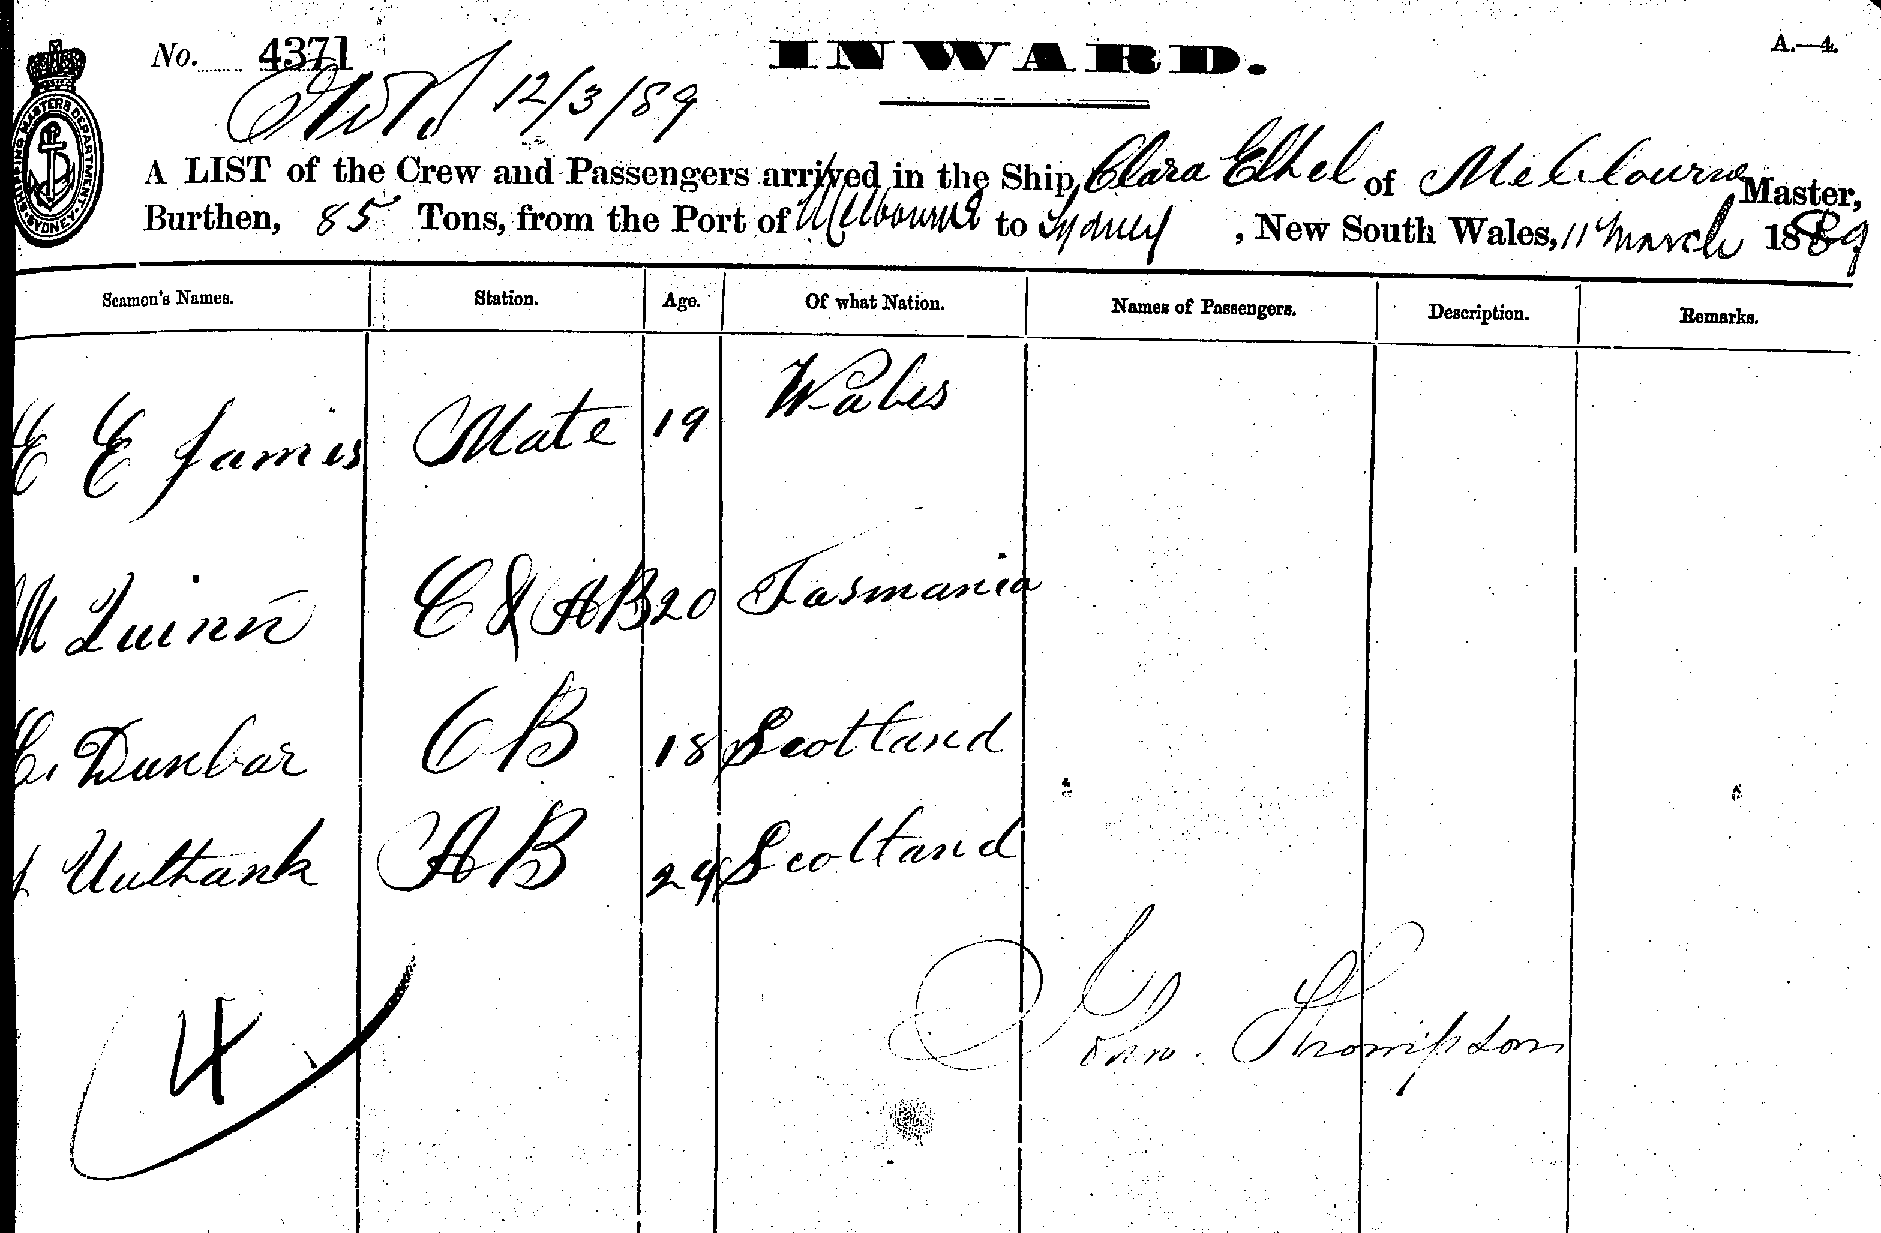 No. 4371 INWARD. A.—4.
12/3/89
A LIST of the Crew and Passengers arrived in the Ship, Clara Ethel of Melbourne Master,
Burthen, 85 Tons, from the Port of Melbourne to Sydney, New South Wales, 11 March 1889
Seamen's Names. Station. Age. Of what Nation. Names of Passengers. Description. Remarks.
E James Mate 19 Wales
M Quinn C & AB 20 Tasmania
C. Dunbar OB 18 Scotland
AB 29 Scotland
Thompson
4